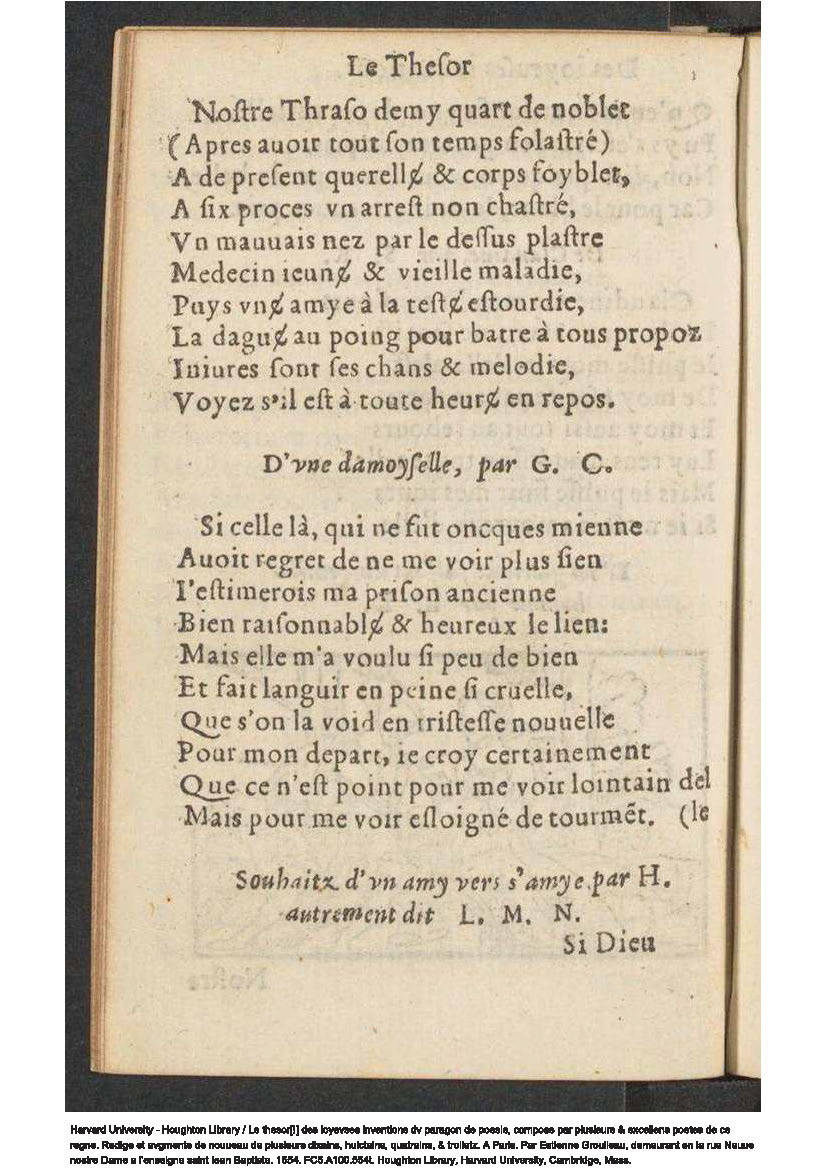 Le Theſor
Noſtre Thraſo demy quart de noblet
(Apres auoir tout ſon temps folaſtré)
A de preſent querellɇ & corps foyblet,
A ſix proces vn arreſt non chaſtré,
Vn mauuais nez par le deſſus plaſtre
Medecin ieunɇ & vieille maladie,
Puys vnɇ amye à la teſtɇ eſtourdie,
La daguɇ au poing pour batre à tous propoz
Iniures ſont ſes chans & melodie,
Voyez s'il eſt à toute heurɇ en repos.
D'vne damoyſelle, par G. C.
Si celle là, qui ne fut oncques mienne
Auoit regret de ne me voir plus ſien
I'eſtimerois ma priſon ancienne
Bien raiſonnablɇ & heureux le lien:
Mais elle m'a voulu ſi peu de bien
Et fait languir en peine ſi cruelle,
Que s'on la void en triſteſſe nouuelle
Pour mon depart, ie croy certainement
Que ce n'eſt point pour me voir lointain del
Mais pour me voir eſloigné de tourmẽt. (le
Souhaitz d'vn amy vers s'amye par H.
autrement dit L. M. N.
Si Dieu
Harvard University - Houghton Library / Le thesor[i] des ioyevses inventions dv paragon de poesie, compose par plusieurs & excellens poetes de ce
regne. Redige et avgmente de nouueau de plusieurs dixains, huictains, quatrains, & trolletz. A Paris. Par Estienne Groulleau, demeurant en la rue Neuue
nostre Dame a l'enseigne saint Iean Baptiste. 1554. FC5.A100.554t. Houghton Library, Harvard University, Cambridge, Mass.